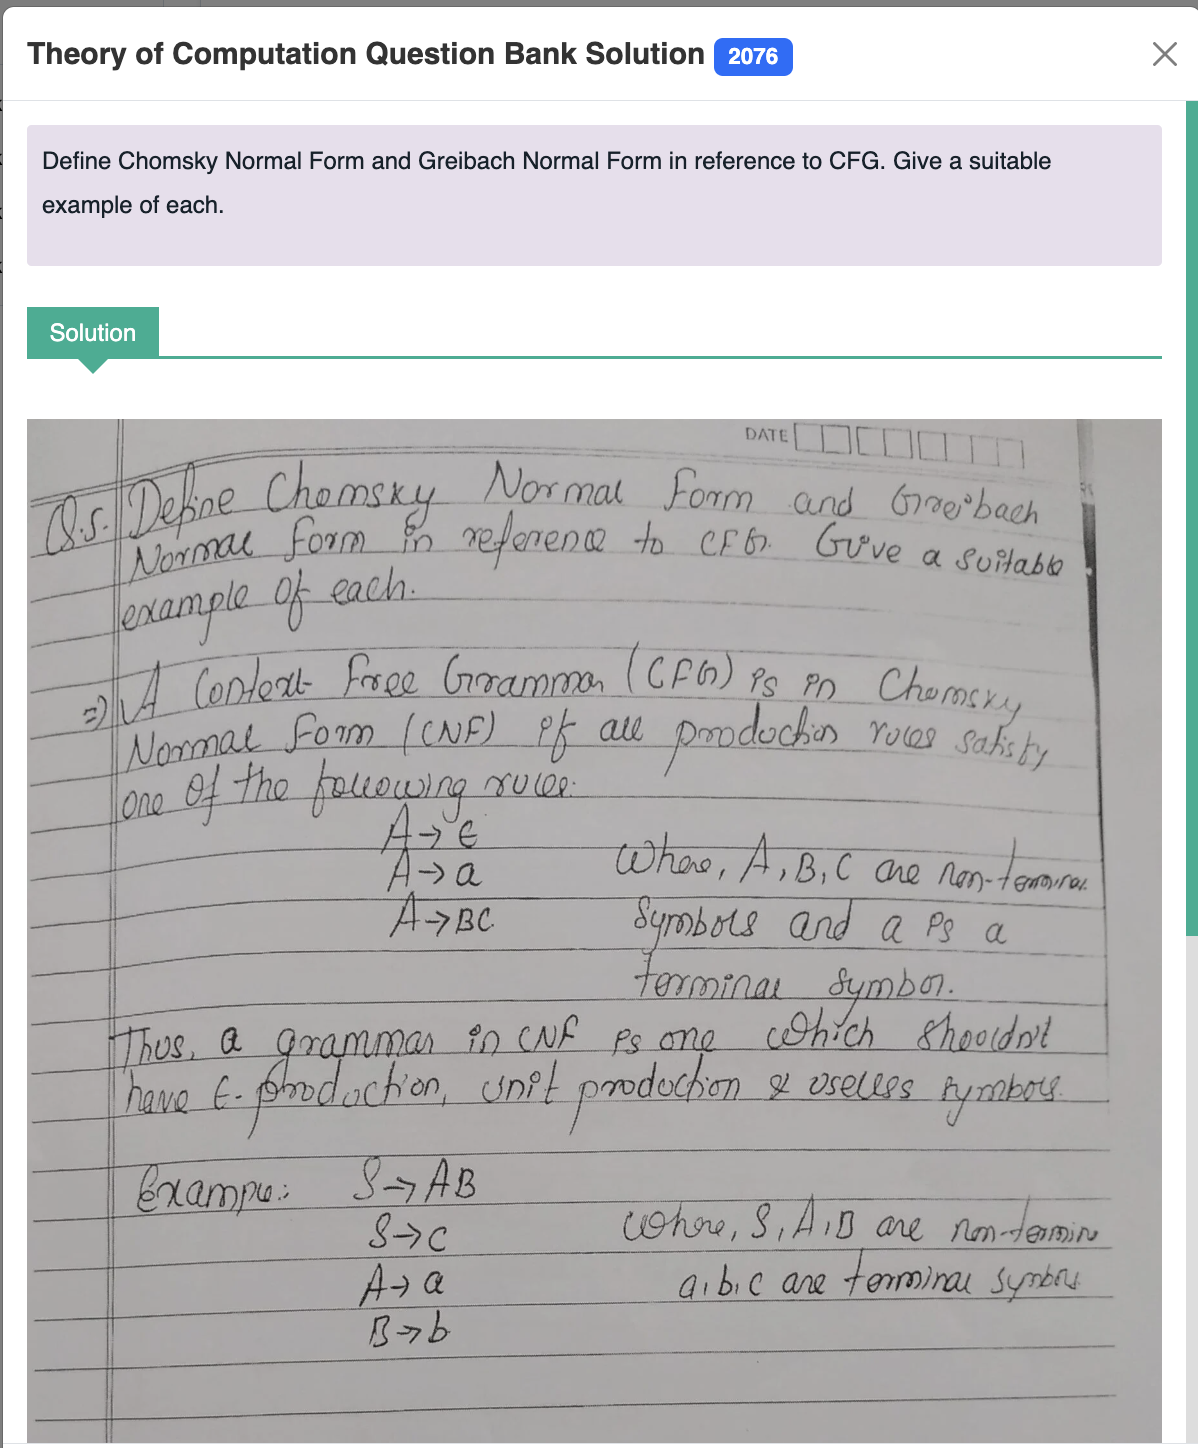 Theory of Computation Question Bank Solution 2076
Define Chomsky Normal Form and Greibach Normal Form in reference to CFG. Give a suitable
example of each.
Solution
DATE
Q.5. Define Chomsky Normal Form and Greibach
Normal Form in reference to CFG. Give a suitable
example of each.
=> A Context Free Grammar (CFG) is in Chomsky
Normal Form (CNF) if all production rules satisfy
one of the following rules:
A → ϵ
A → a where, A, B, C are non-terminal
A → BC symbols and a is a
terminal symbol.
Thus, a grammar in CNF is one which shouldn't
have ϵ-production, unit production & useless symbols.
Example: S → AB
S → c where, S, A, B are non-termin
A → a a, b, c are terminal symbols
B → b